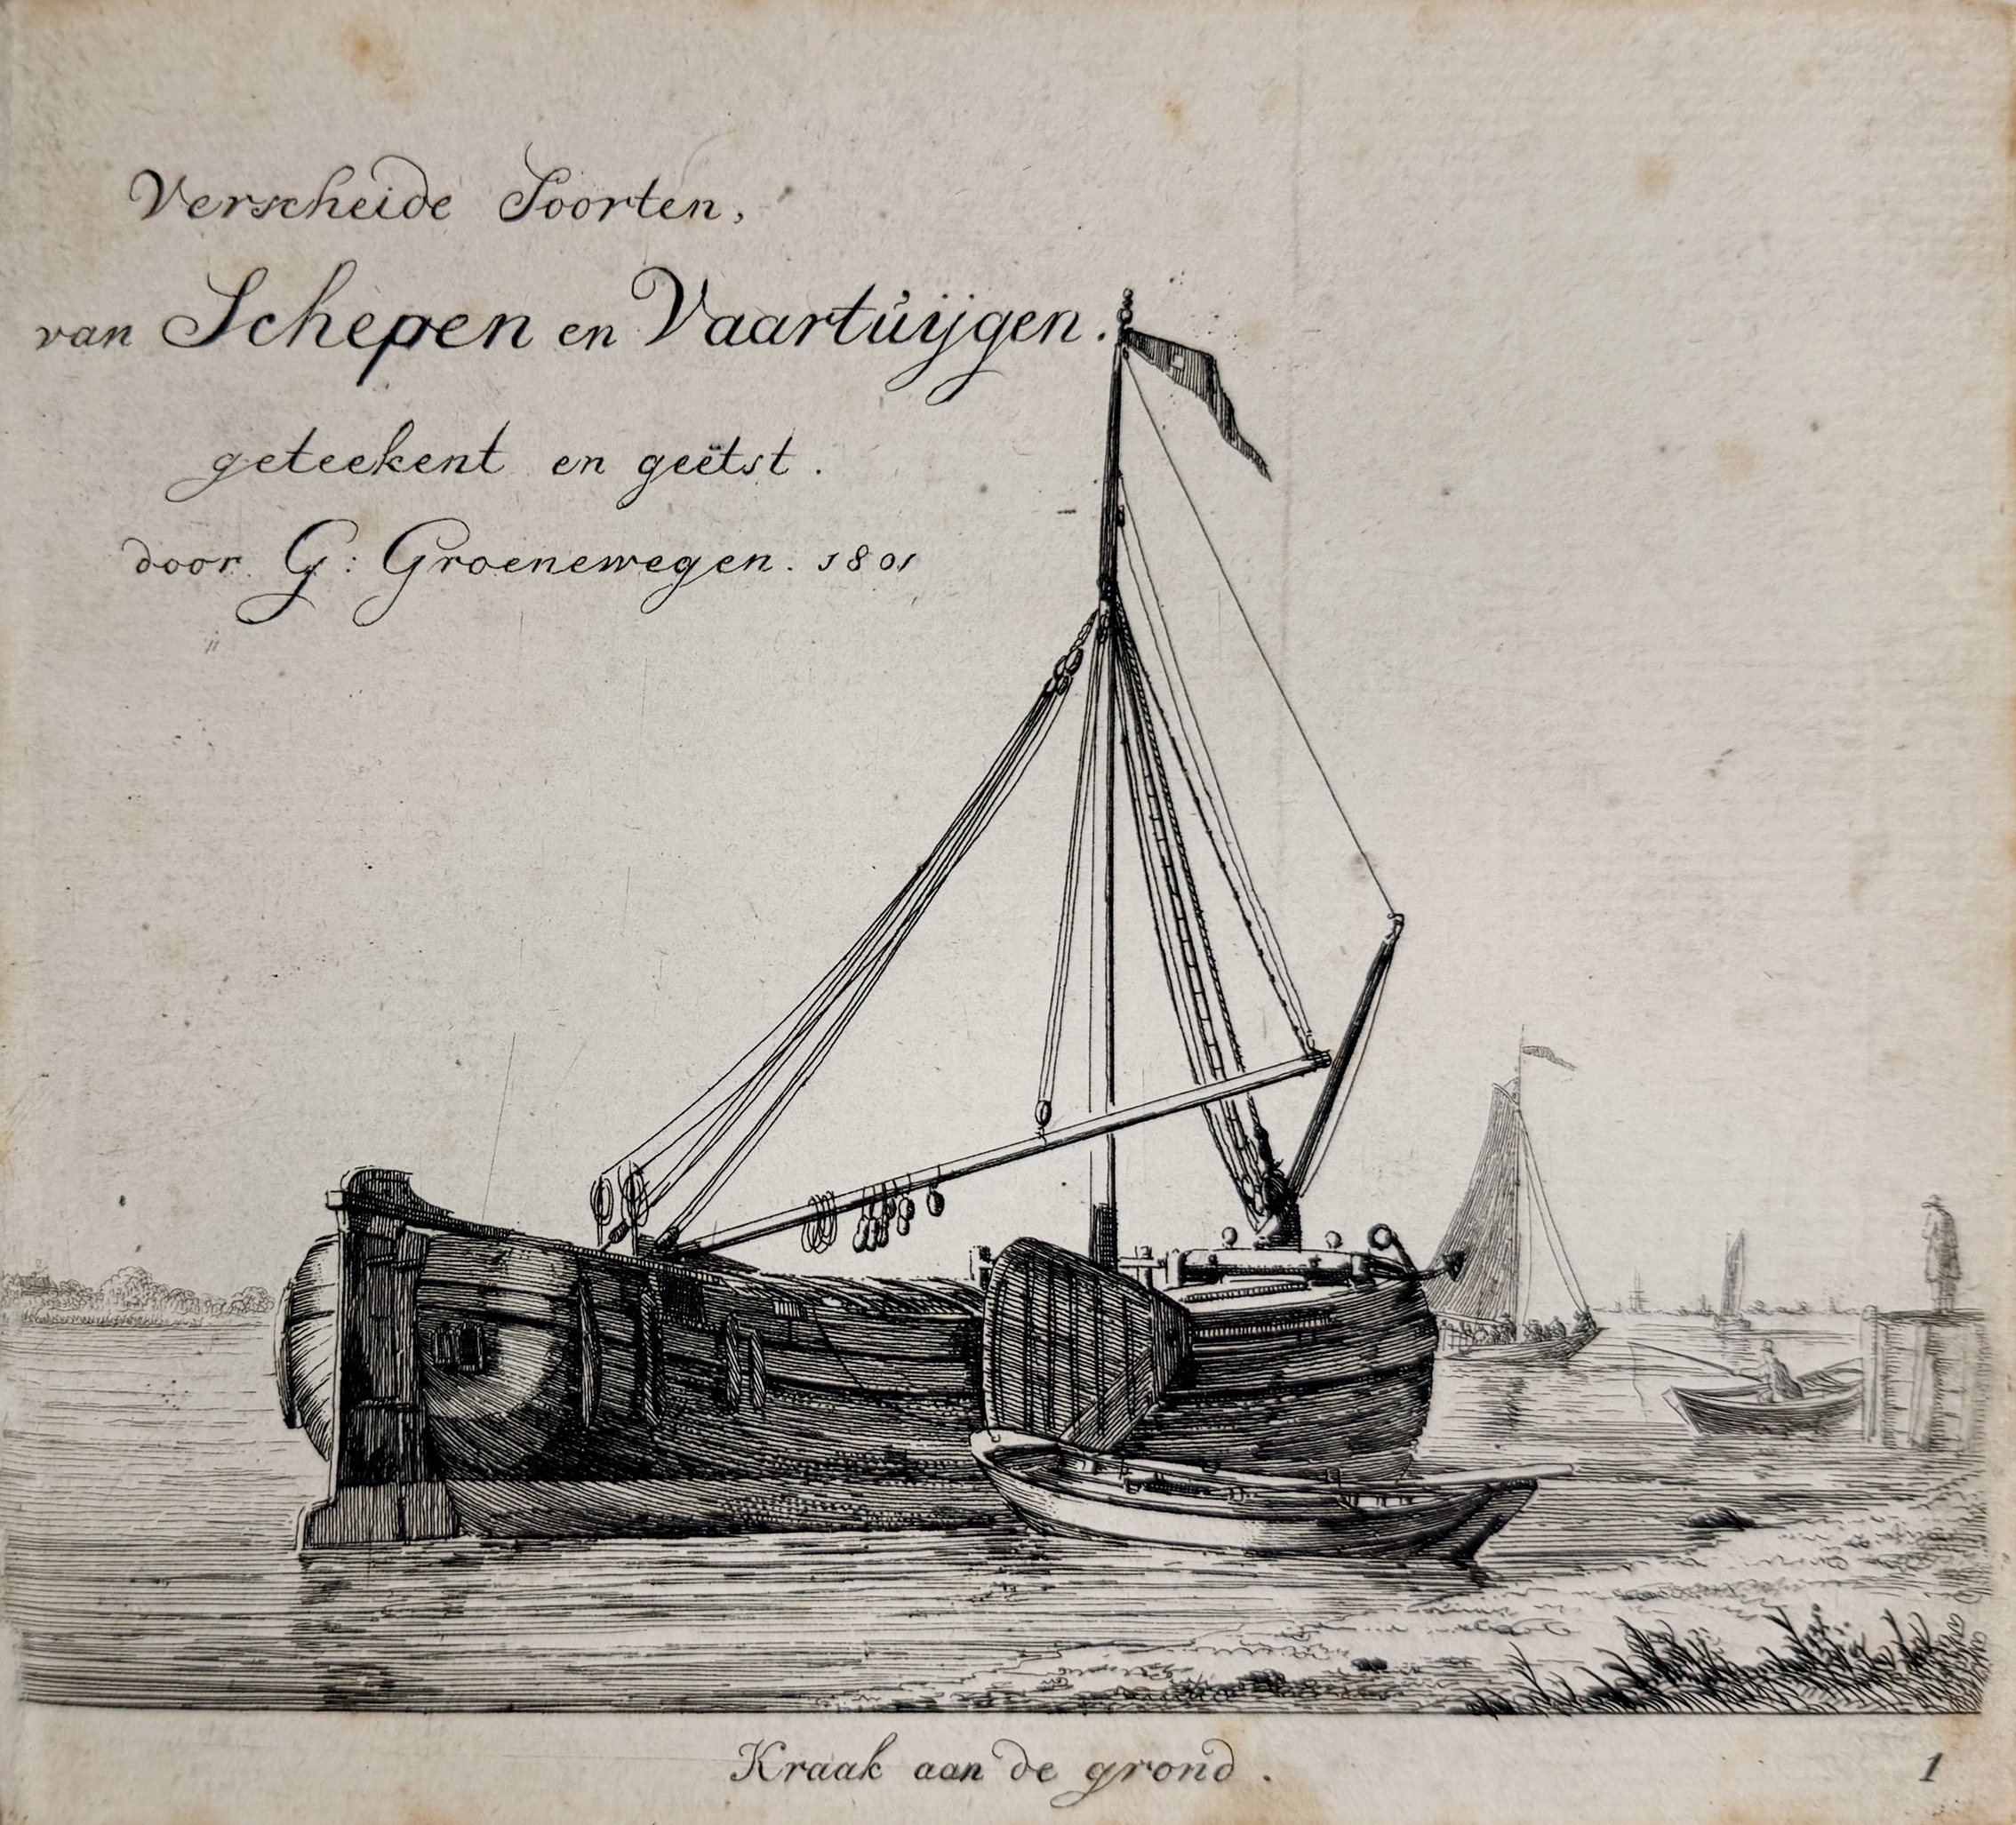 Verscheide Soorten,
van Schepen en Vaartúijgen.
geteekent en geëtst.
door G: Groenewegen. 1801
Kraak aan de grond.
1